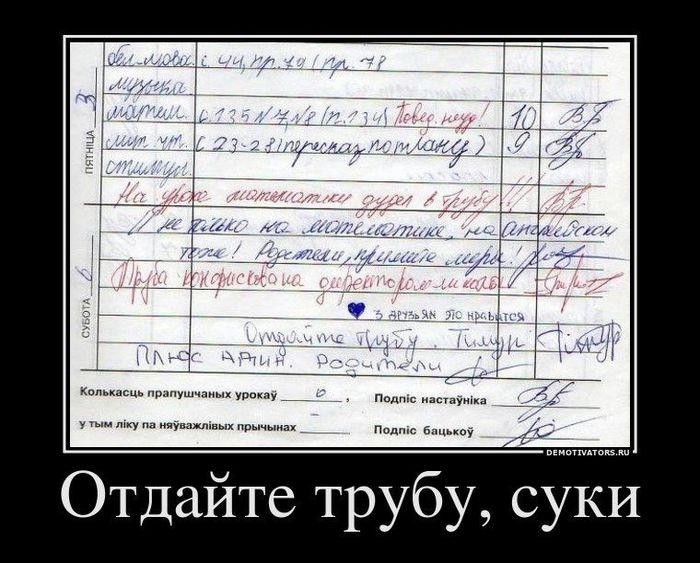 бел.мова. с 44, пр. 79 (пр. 78
музыка
матем. с 135 №7,№8 (п.134) Повед. неуд! 10 ВБ
лит чт. с 23-28 (пересказ по плану) 9 ВБ
стимул.
ПЯТНІЦА
3
На уроке математики дудел в трубу!!! ВБ
И не только на математике, на английском
тоже! Родители, примите меры!
Труба конфискована директором школы
СУБОТА
6
3 друзьям это нравится
Отдайте трубу. Тимур Тимур
Плюс Адин. Родители
Колькасць прапушчаных урокаў 6 , Подпіс настаўніка ВБ
у тым ліку па няўважлівых прычынах – Подпіс бацькоў
DEMOTIVATORS.RU
Отдайте трубу, суки